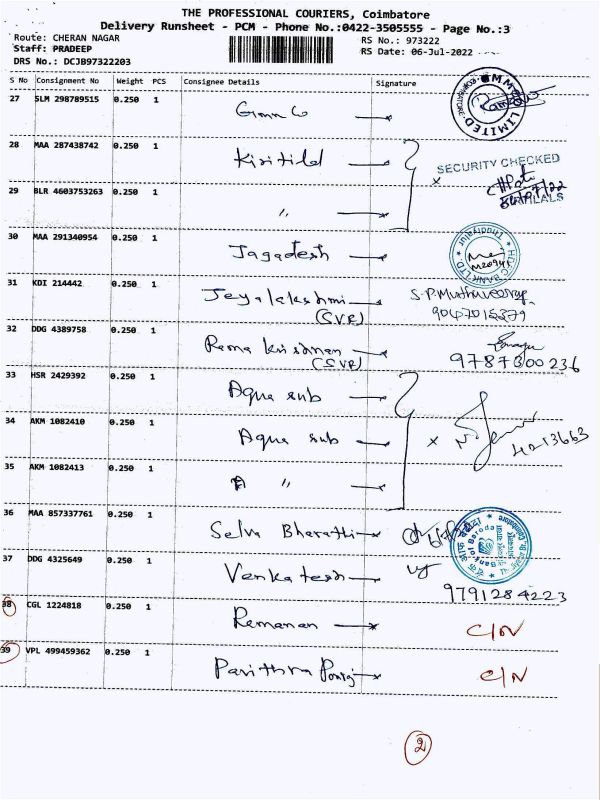 THE PROFESSIONAL COURIERS, Coimbatore
Delivery Runsheet - PCM - Phone No.:0422-3505555 - Page No.:3
Route: CHERAN NAGAR RS No.: 973222
Staff: PRADEEP RS Date: 06-Jul-2022
DRS No.: DCJB97322203
S No Consignment No Weight PCS Consignee Details Signature
27 SLM 298789515 0.250 1 Gmm Co LIMITED
28 MAA 287438742 0.250 1 Kirtild SECURITY CHECKED
29 BLR 4603753263 0.250 1 "
30 MAA 291340954 0.250 1 Jagadesh Thudiyalur
31 KDI 214442 0.250 1 Jeyalakshmi S.P.
(SVR) 9047015379
32 DDG 4389758 0.250 1 Rama Krishnan
(SVR) 9787300236
33 HSR 2429392 0.250 1 Aqua sub
34 AKM 1082410 0.250 1 Aqua sub x 4213663
35 AKM 1082413 0.250 1 "
36 MAA 857337761 0.250 1 Selva Bharathi Bank of Baroda
37 DDG 4325649 0.250 1 Venkatesh 9791284223
38 CGL 1224818 0.250 1 Ramanan C/N
39 VPL 499459362 0.250 1 Pavithra C/N
2